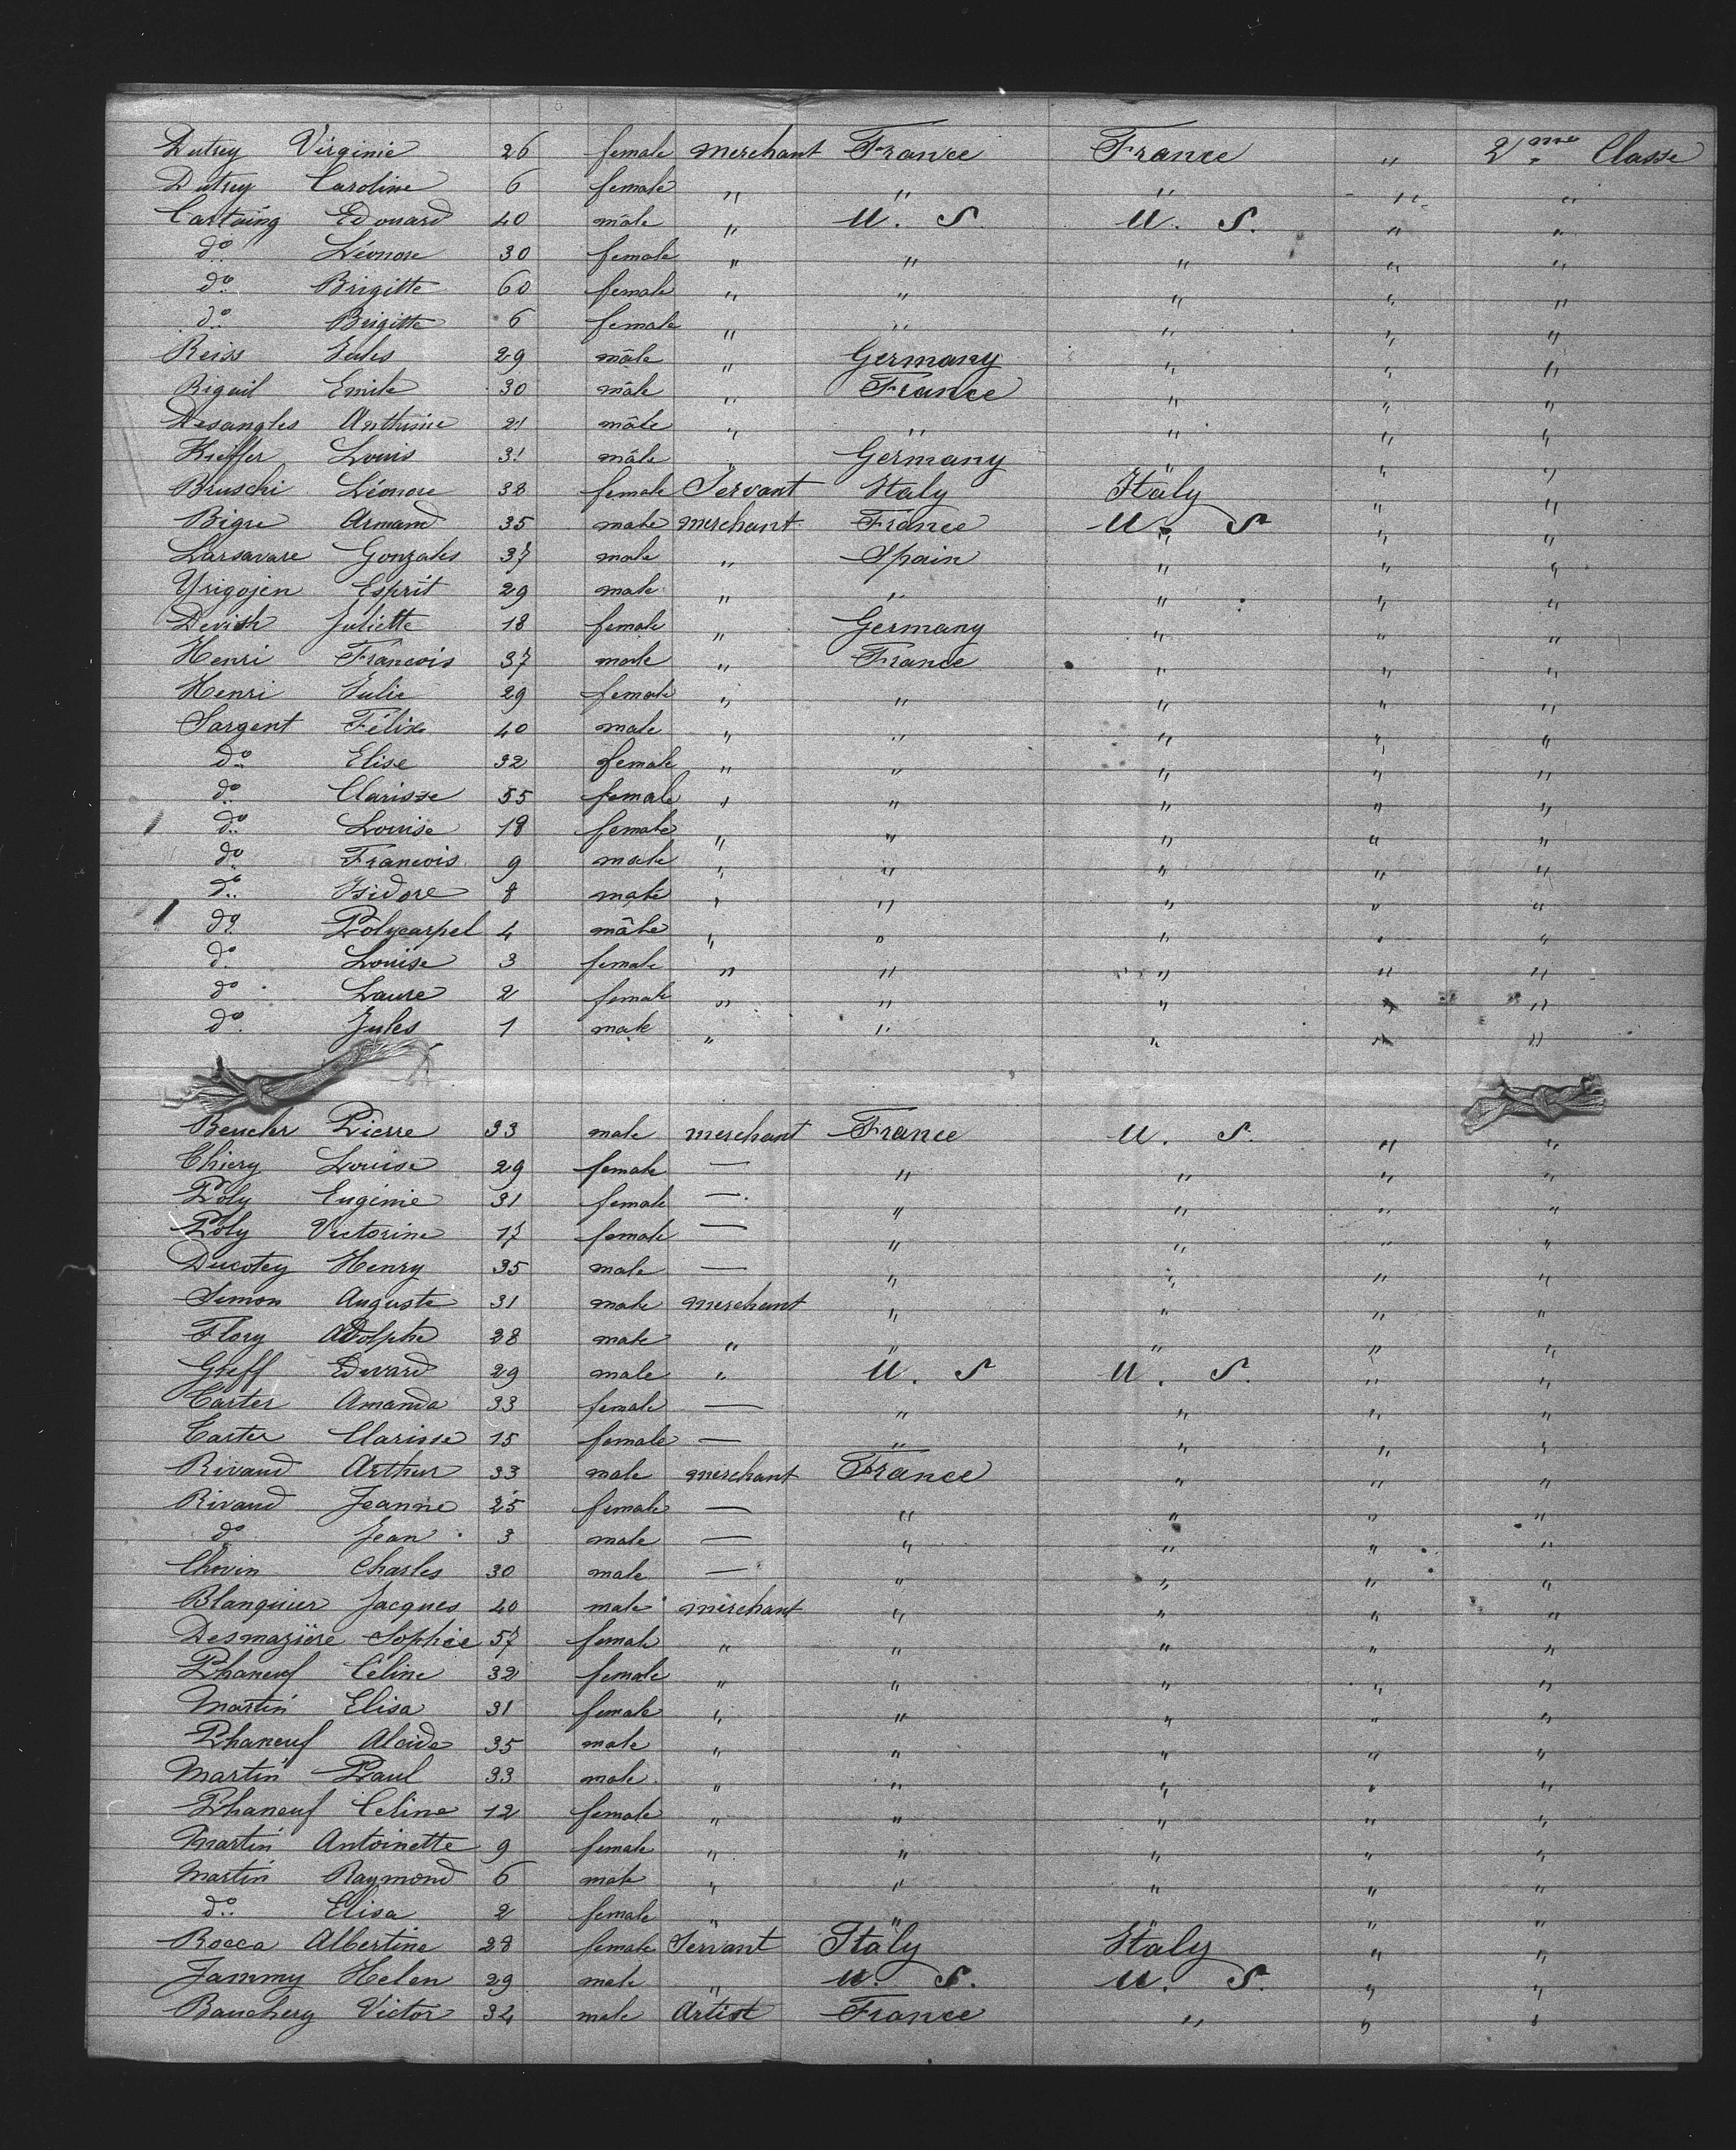 Dutrey Virginie 26 female merchant France France " 2me Classe
Dutrey Caroline 6 female " " " " "
Cartaing Edouard 40 mâle " U. S. U. S. " "
do Léonore 30 female " " " " "
do Brigitte 60 female " " " " "
do Brigitte 6 female " " " " "
Reiss Jules 29 mâle " Germany " " "
Rigail Emile 30 mâle " France " " "
Desangles Anthime 21 mâle " " " " "
Kieffer Louis 31 mâle " Germany " " "
Bruschi Léonore 38 female Servant Italy Italy " "
Bigre Armand 35 male merchant France U. S " "
Larsavare Gonzales 37 male " Spain " " "
Yrigojen Esprit 29 male " " " " "
Devish Juliette 18 female " Germany " " "
Henri Francois 37 male " France " " "
Henri Julie 29 female " " " " "
Sargent Félix 40 male " " " " "
do Elise 32 female " " " " "
do Clarisse 55 female " " " " "
do Louise 18 female " " " " "
do Francois 9 male " " " " "
do Isidore 8 male " " " " "
do Polycarpel 4 mâle " " " " "
do Louise 3 female " " " " "
do Laure 2 female " " " " "
do Jules 1 male " " " " "
Beucler Pierre 33 male merchant France U. S. " "
Thiery Louise 29 female — " " " "
Poly Eugénie 31 female — " " " "
Poly Victorine 17 female — " " " "
Ducotey Henry 35 male — " " " "
Simon Auguste 31 male merchant " " " "
Flory Adolphe 28 male " " " " "
Greff Edward 29 male " U. S U. S. " "
Carter Amanda 33 female — " " " "
Carter Clarisse 15 female — " " " "
Rivaud Arthur 33 male merchant France " " "
Rivaud Jeanne 25 female — " " " "
do Jean 3 male — " " " "
Chovin Charles 30 male — " " " "
Blanquier Jacques 40 male merchant " " " "
Desmazière Sophie 57 female " " " " "
Phaneuf Céline 32 female " " " " "
Martin Elisa 31 female " " " " "
Phaneuf Alcide 35 male " " " " "
Martin Paul 33 male " " " " "
Phaneuf Celine 12 female " " " " "
Martin Antoinette 9 female " " " " "
Martin Raymond 6 male " " " " "
do Elisa 2 female " " " " "
Rocca Albertine 28 female Servant Italy Italy " "
Jammy Helen 29 male " U. S. U. S. " "
Bauchery Victor 32 male Artist France " " "